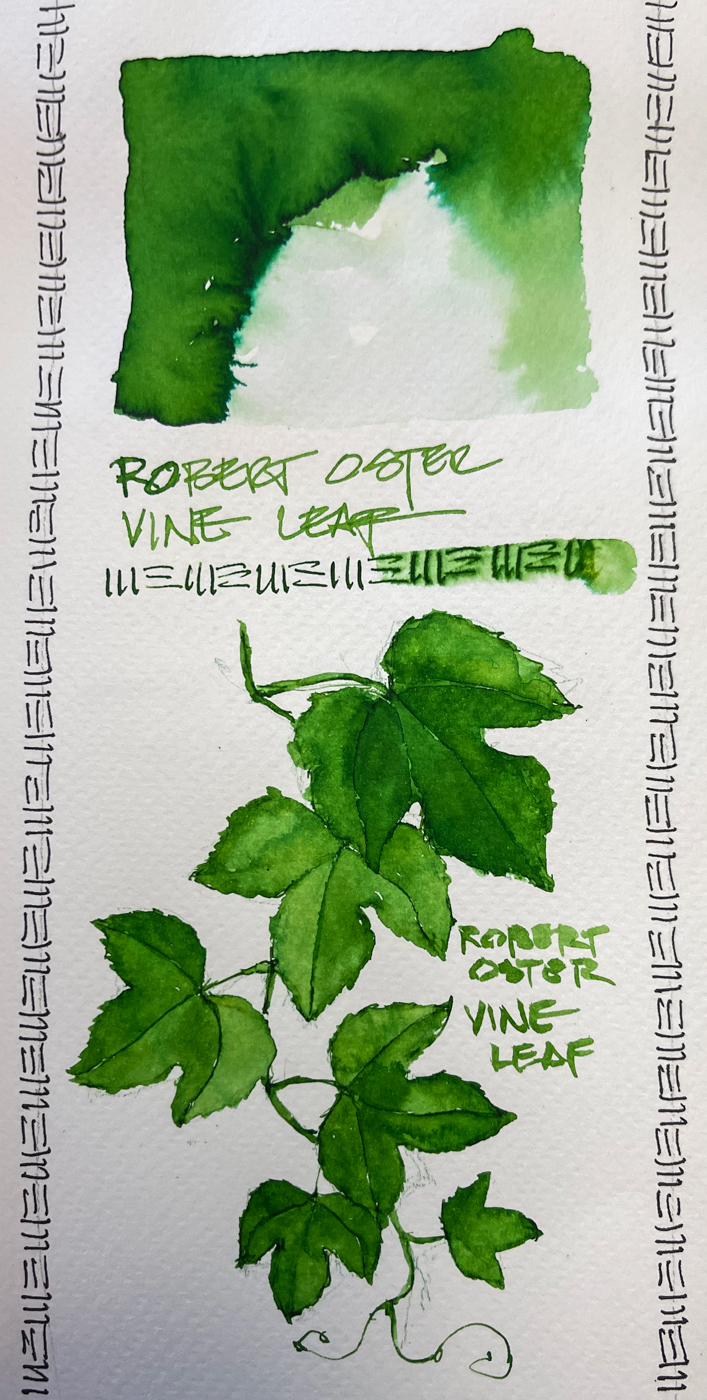 ROBERT OSTER
VINE LEAF
ROBERT
OSTER
VINE
LEAF